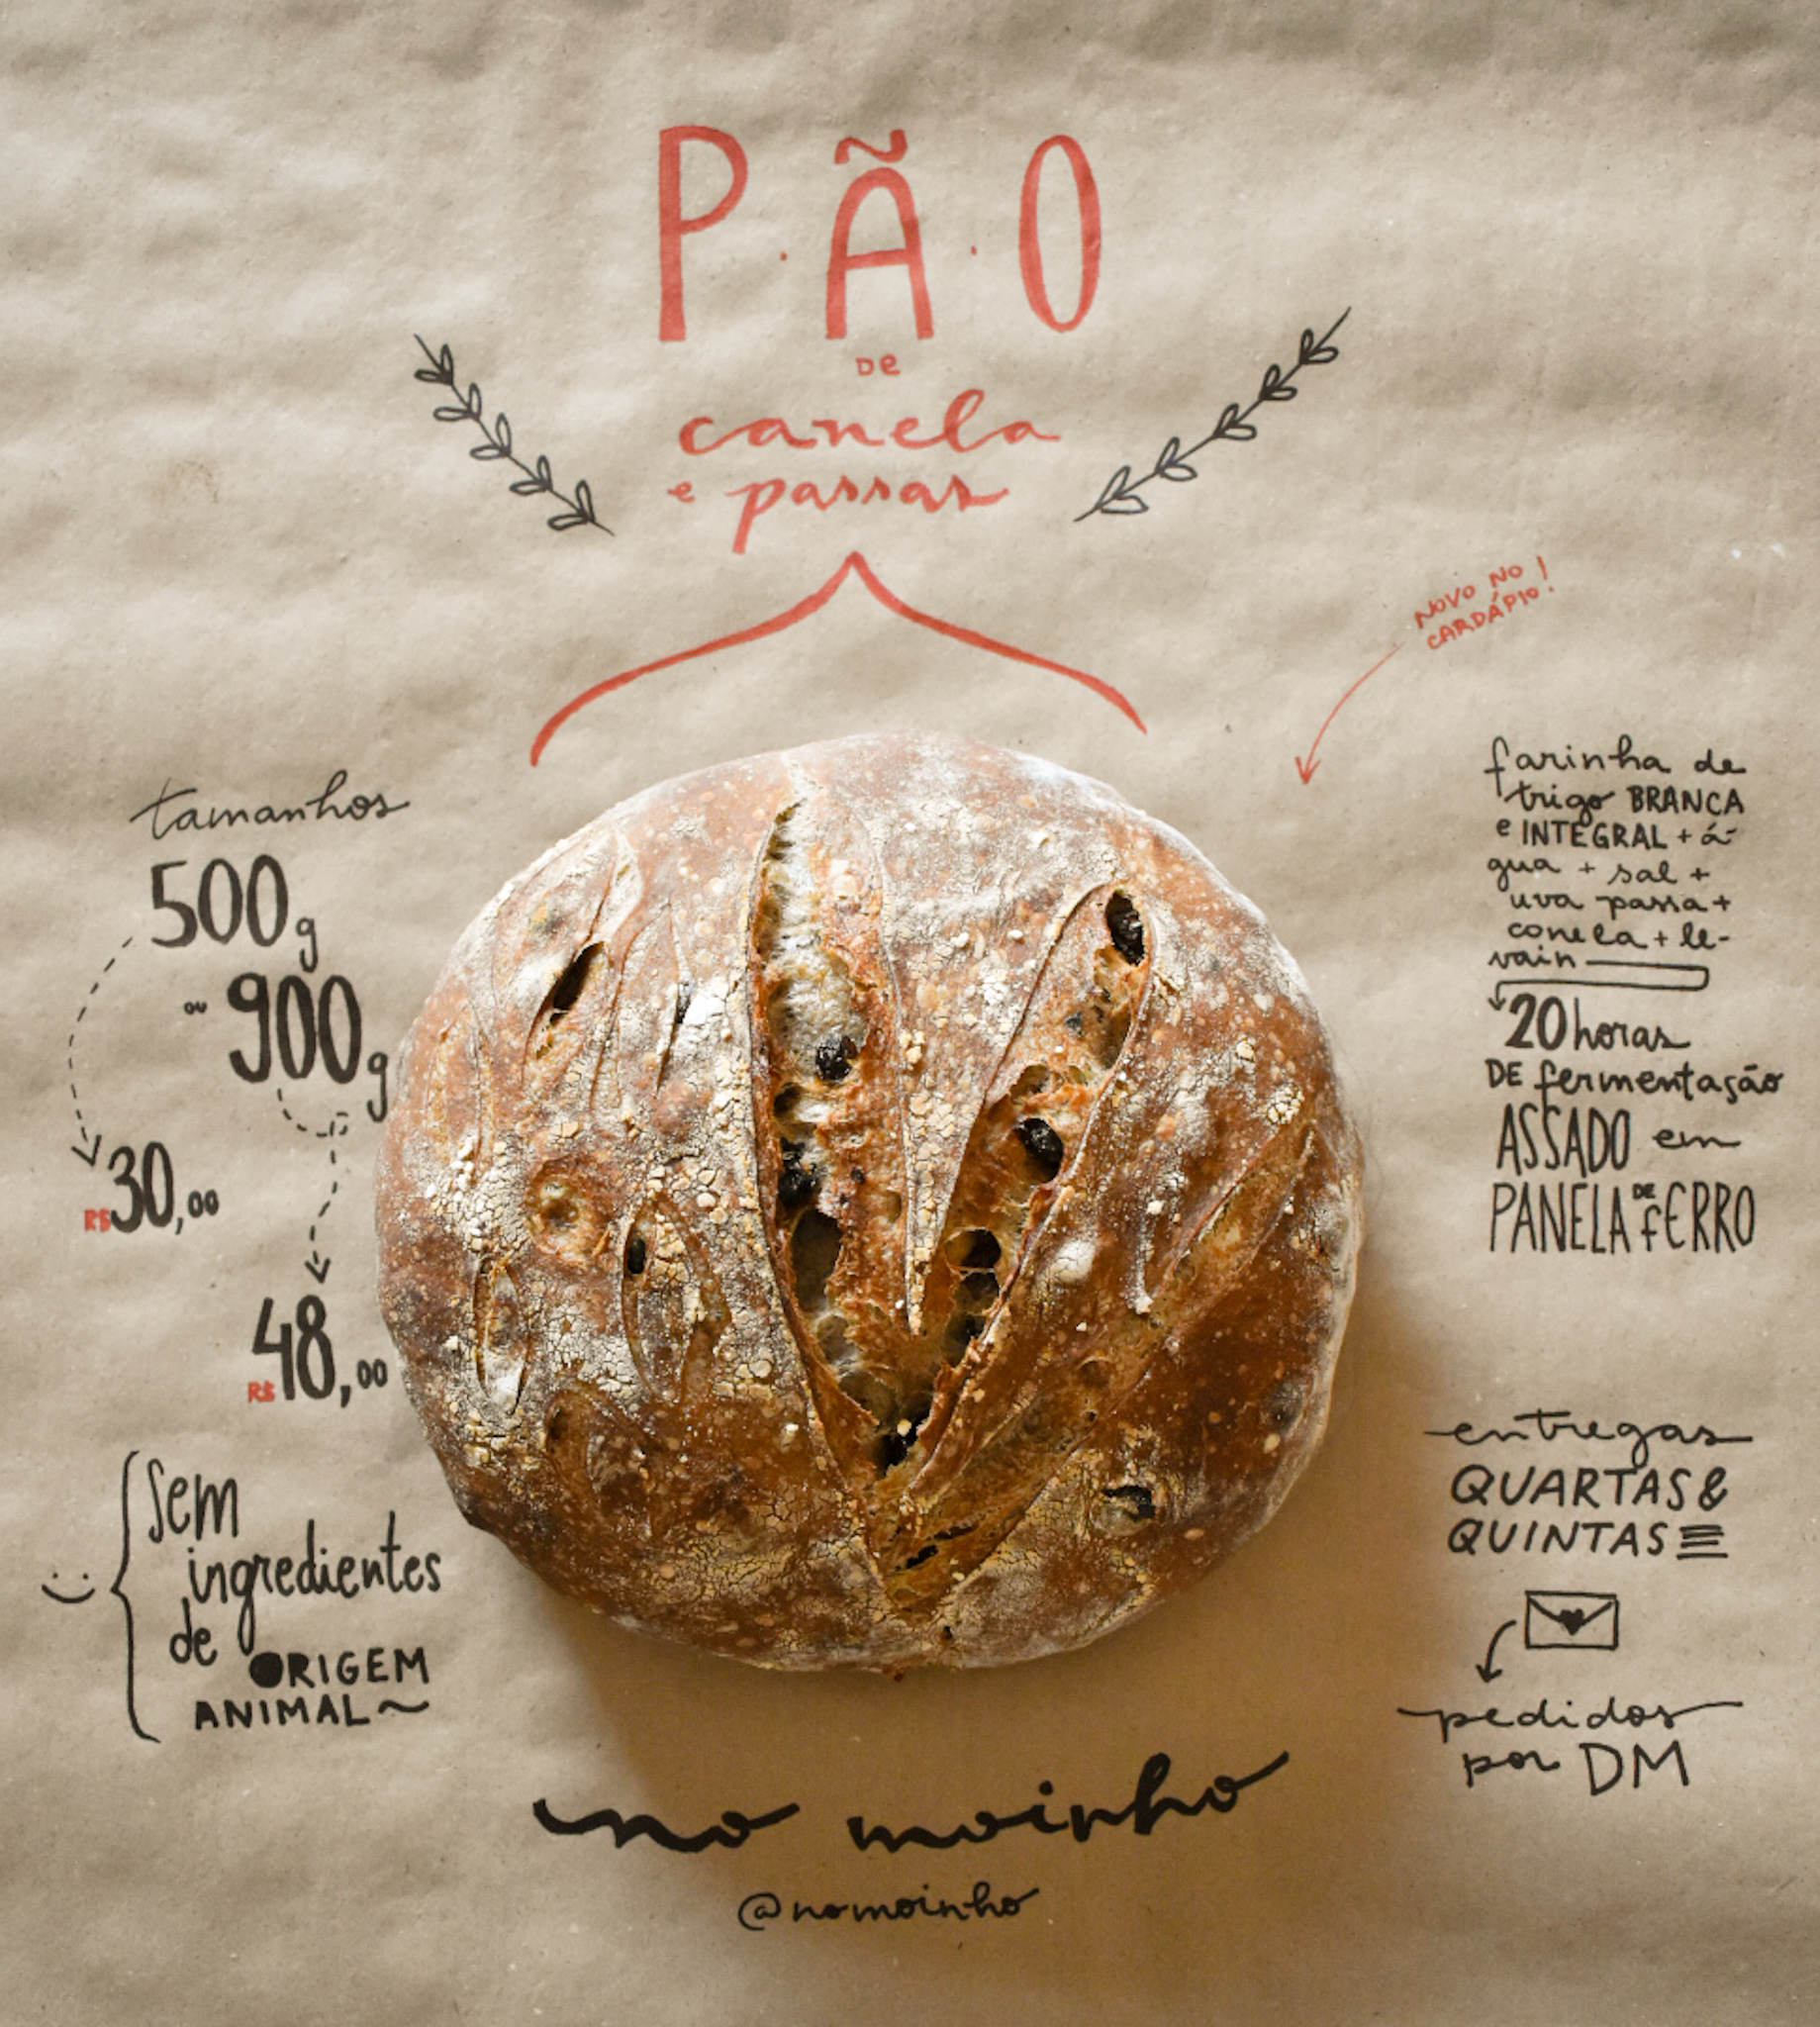 PÃO
DE
canela
e passas
NOVO NO
CARDÁPIO!
tamanhos
500g
ou 900g
R$30,00
R$48,00
sem
ingredientes
de
ORIGEM
ANIMAL~
farinha de
trigo BRANCA
e INTEGRAL + á-
gua + sal +
uva passa +
canela + le-
vain
20 horas
DE fermentação
ASSADO em
PANELA DE fERRO
entregas
QUARTAS &
QUINTAS
pedidos
por DM
no moinho
@nomoinho